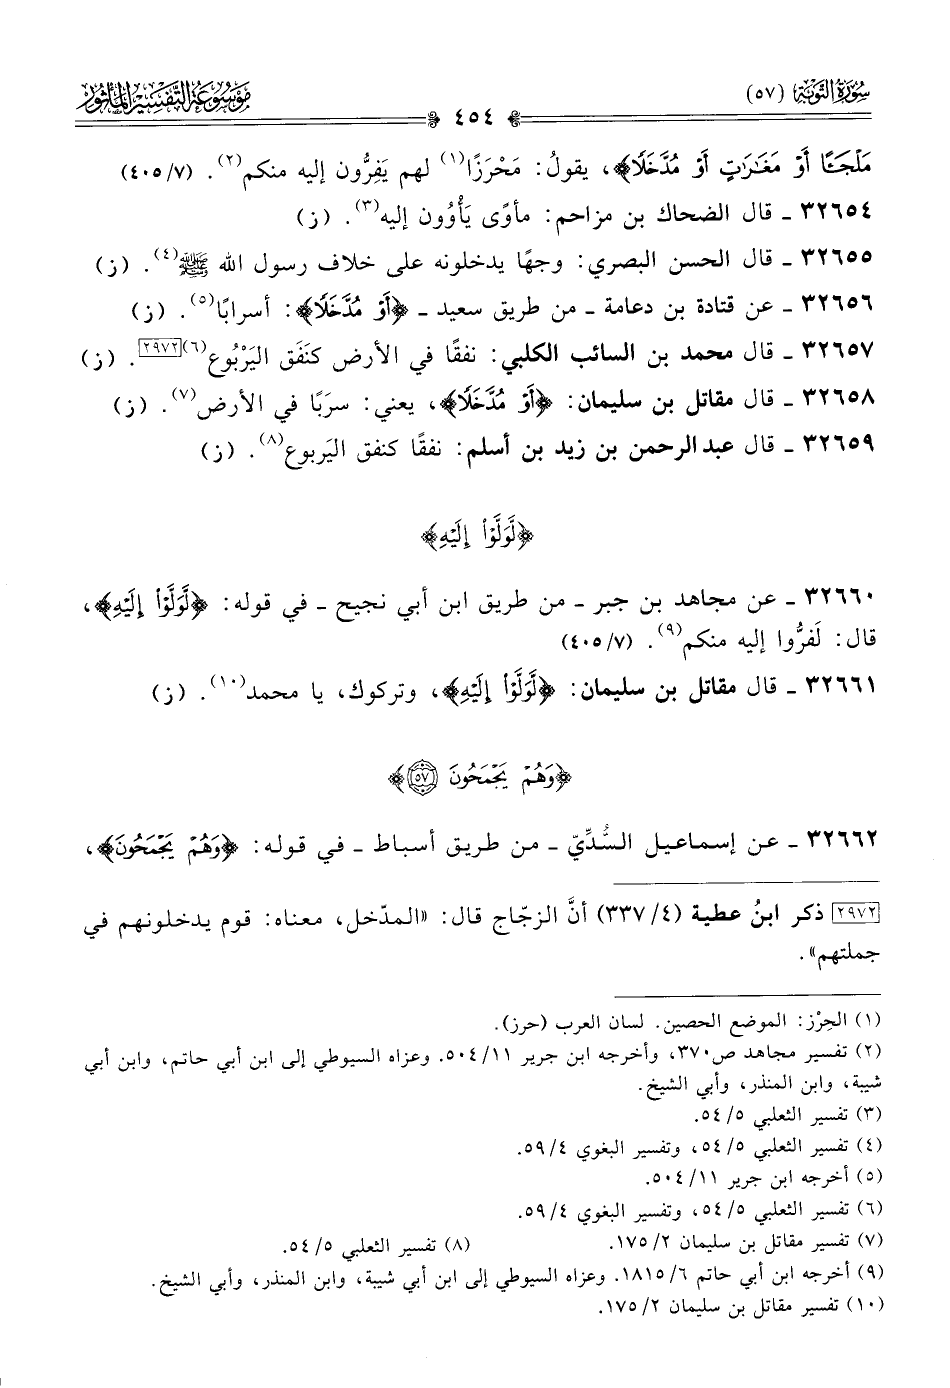 سُورَةُ التَّوْبَة (٥٧)
٤٥٤
مَوْسُوعَةُ التَّفْسِيرِ المَأْثُور
مَلْجَـًٔا أَوْ مَغَـٰرَٰتٍ أَوْ مُدَّخَلًا﴾، يقولُ: مَحْرَزًا(١) لهم يَفِرُّون إليه منكم(٢). (٤٠٥/٧)
٣٢٦٥٤ ـ قال الضحاك بن مزاحم: مأوًى يَأْوُون إليه(٣). (ز)
٣٢٦٥٥ ـ قال الحسن البصري: وجهًا يدخلونه على خلاف رسول الله ﷺ(٤). (ز)
٣٢٦٥٦ ـ عن قتادة بن دعامة ـ من طريق سعيد ـ ﴿أَوْ مُدَّخَلًا﴾: أسرابًا(٥). (ز)
٣٢٦٥٧ ـ قال محمد بن السائب الكلبي: نفقًا في الأرض كنَفَق اليَرْبُوع(٦)[٢٩٧٢]. (ز)
٣٢٦٥٨ ـ قال مقاتل بن سليمان: ﴿أَوْ مُدَّخَلًا﴾، يعني: سرَبًا في الأرض(٧). (ز)
٣٢٦٥٩ ـ قال عبد الرحمن بن زيد بن أسلم: نفقًا كنفق اليَربوع(٨). (ز)
﴿لَّوَلَّوْا۟ إِلَيْهِ﴾
٣٢٦٦٠ ـ عن مجاهد بن جبر ـ من طريق ابن أبي نجيح ـ في قوله: ﴿لَّوَلَّوْا۟ إِلَيْهِ﴾،
قال: لَفرُّوا إليه منكم(٩). (٤٠٥/٧)
٣٢٦٦١ ـ قال مقاتل بن سليمان: ﴿لَّوَلَّوْا۟ إِلَيْهِ﴾، وتركوك، يا محمد(١٠). (ز)
﴿وَهُمْ يَجْمَحُونَ ٥٧﴾
٣٢٦٦٢ ـ عن إسماعيل السُّدِّيّ ـ من طريق أسباط ـ في قوله: ﴿وَهُمْ يَجْمَحُونَ﴾،
[٢٩٧٢] ذكر ابنُ عطية (٤/ ٣٣٧) أنَّ الزجّاج قال: «المدّخل، معناه: قوم يدخلونهم في
جملتهم».
(١) الحِرْز: الموضع الحصين. لسان العرب (حرز).
(٢) تفسير مجاهد ص٣٧٠، وأخرجه ابن جرير ١١/ ٥٠٤. وعزاه السيوطي إلى ابن أبي حاتم، وابن أبي
شيبة، وابن المنذر، وأبي الشيخ.
(٣) تفسير الثعلبي ٥/ ٥٤.
(٤) تفسير الثعلبي ٥/ ٥٤، وتفسير البغوي ٤/ ٥٩.
(٥) أخرجه ابن جرير ١١/ ٥٠٤.
(٦) تفسير الثعلبي ٥/ ٥٤، وتفسير البغوي ٤/ ٥٩.
(٧) تفسير مقاتل بن سليمان ٢/ ١٧٥. (٨) تفسير الثعلبي ٥/ ٥٤.
(٩) أخرجه ابن أبي حاتم ٦/ ١٨١٥. وعزاه السيوطي إلى ابن أبي شيبة، وابن المنذر، وأبي الشيخ.
(١٠) تفسير مقاتل بن سليمان ٢/ ١٧٥.